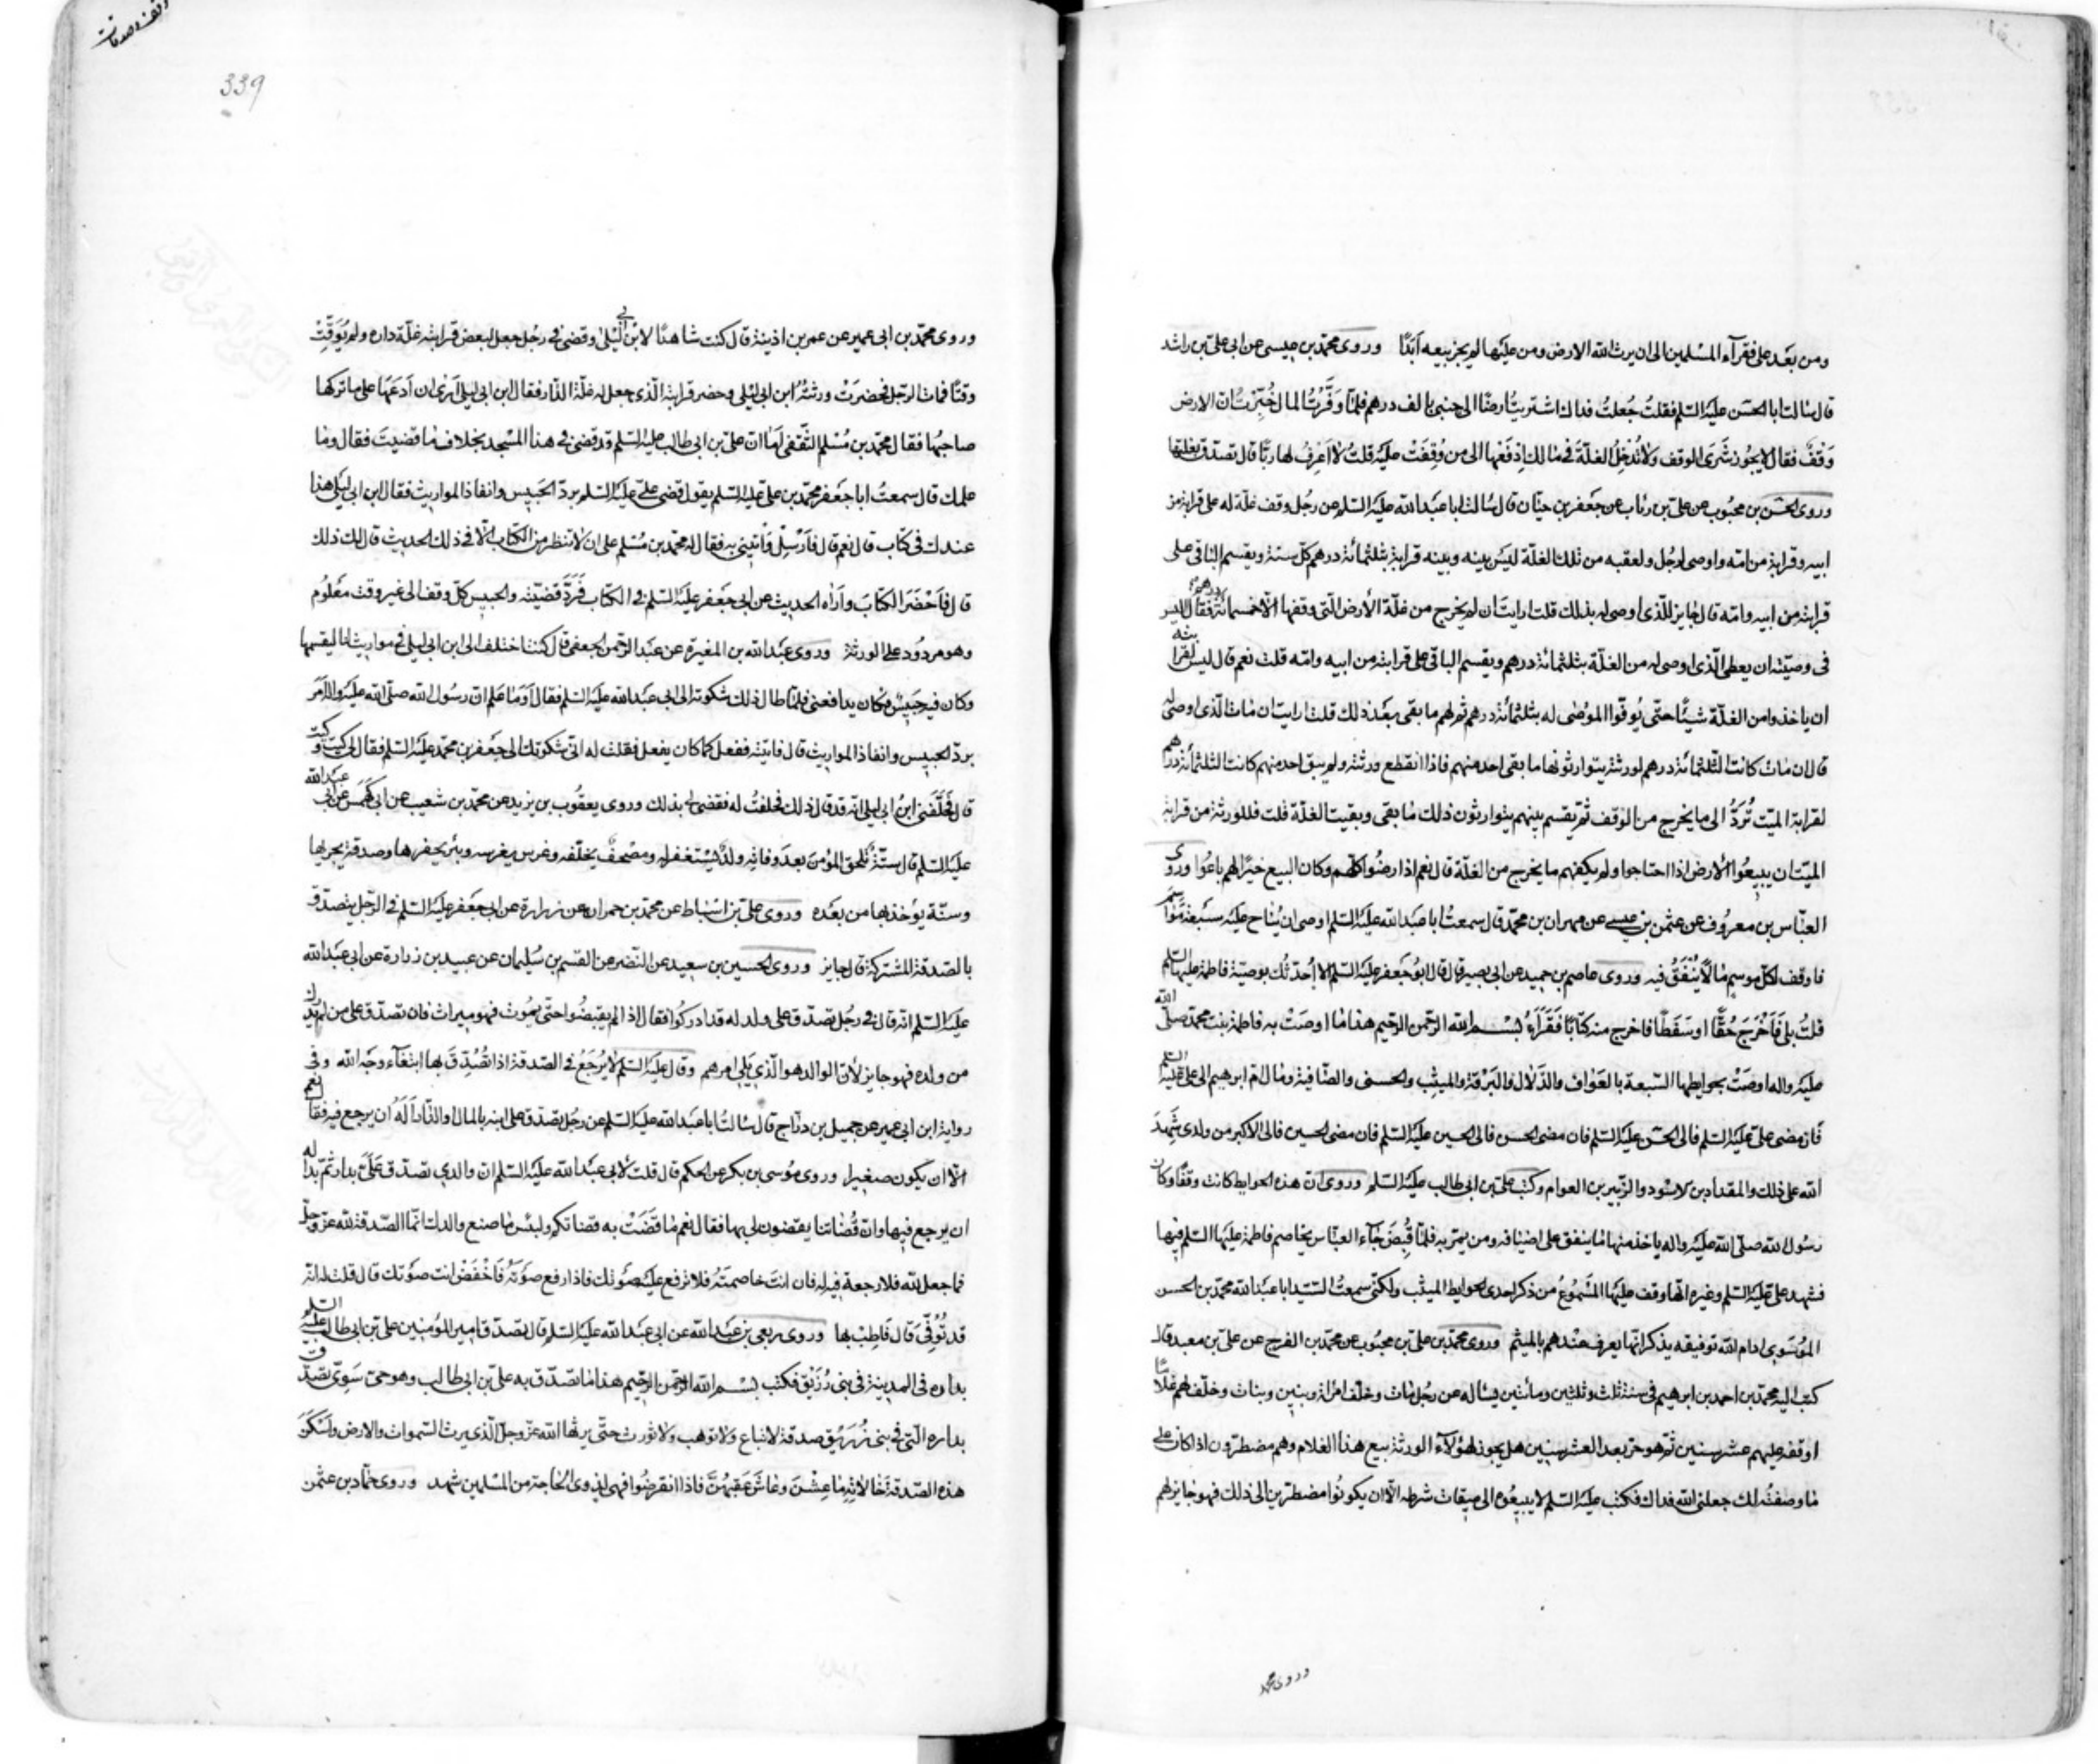 ومن بعد على فقرآء المسلمين الى ان يرث الله الارض ومن عليها لم يجز بيعه ابدًا وروى محمّد بن عيسى عن ابى علىّ بن راشد
قال سالت ابا الحسن عليه السّلم فقلت جعلت فداك اشتريت ارضًا الى جنبى بالف درهم فلمّا وفّرت المال خبّرت انّ الارض
وقف فقال لا يجوز شرى الوقف ولا تدخل الغلّة فى مالك ادفعها الى من وقفت عليه قلت لا اعرف لها ربّا قال تصدّق بغلتها
وروى الحسن بن محبوب عن علىّ بن رئاب عن جعفر بن حيّان قال سالت ابا عبد الله عليه السّلم عن رجل وقف غلّة له على قرابة من
ابيه وقرابة من امّه واوصى لرجل ولعقبه من تلك الغلّة ليس بينه وبينه قرابة بثلثمائة درهم كلّ سنة ويقسم الباقى على
قرابته من ابيه وامّه قال جايز للّذى اوصى له بذلك قلت ارايت ان لم يخرج من غلّة الأرض الّتى وقفها الّا خمسمائة درهم فقال اليس
فى وصيّته ان يعطى الّذى اوصى له من الغلّة بثلثمائة درهم ويقسم الباقى على قرابته من ابيه وامّه قلت نعم قال ليس لقرابته
ان ياخذوا من الغلّة شيئًا حتّى يوفّوا الموصى له بثلثمائة درهم ثم لهم ما بقى بعد ذلك قلت ارايت ان مات الّذى اوصى له
قال ان مات كانت الثلثمائة درهم لورثته يتوارثونها ما بقى احد منهم فاذا انقطع ورثته ولم يبق احد منهم كانت الثلثمائة درهم
لقرابة الميّت تُرَدُّ الى ما يخرج من الوقف ثمّ يقسم بينهم يتوارثون ذلك ما بقى وبقيت الغلّة قلت فللورثة من قرابة
الميّت ان يبيعوا الأرض اذا احتاجوا ولم يكفهم ما يخرج من الغلّة قال نعم اذا رضوا كلّهم وكان البيع خيرًا لهم باعوا وروى
العبّاس بن معروف عن عثمن بن عيسى عن مهران بن محمّد قال سمعت ابا عبد الله عليه السّلم اوصى ان يناح عليه سبعة مواسم
فاوقف لكلّ موسم مالًا يُنْفَقُ فيه وروى عاصم بن حميد عن ابى بصير قال قال ابو جعفر عليه السّلم الا احدّثك بوصيّة فاطمة عليها السّلم
قلتُ بلى فَاَخْرَجَ حُقًّا او سَفَطًا فاخرج منه كتابًا فَقَرَاَهُ بسم الله الرّحمن الرّحيم هذا ما اوصَتْ به فاطمة بنت محمّد صلّى الله
عليه واله اوصَتْ بحوايطها السّبعة بالعَوَاف والدَّلال والبَرْقة والميثب والحسنى والصّافية ومال امّ ابرهيم الى علىّ عليه السّلم
فَان مضى علىّ عليه السّلم فالى الحسن عليه السّلم فان مضى الحسن فالى الحسين عليه السّلم فان مضى الحسين فالى الاكبر من ولدى شَهِدَ
الله على ذلك والمقداد بن الاسود والزّبير بن العوام وكتب علىّ بن ابى طالب عليه السّلم وروى انّ هذه الحوايط كانت وقفًا وكان
رسول الله صلّى الله عليه واله ياخذ منها ما ينفق على اضيافه ومن يمرّ به فلمّا قُبِضَ جآء العبّاس يخاصم فاطمة عليها السّلم فيها
فشهد علىّ عليه السّلم وغيره انّها وقف عليها المسموع من ذكر احدى الحوايط الميثب ولكنّى سمعت السّيّد ابا عبد الله محمّد بن الحسن
الموسوى ادام الله توفيقه يذكر انّها يعرف عندهم بالميثم وروى محمّد بن علىّ بن محبوب عن محمّد بن الفرج عن علىّ بن معبد قال
كتب اليه محمّد بن احمد بن ابرهيم فى سنة ثلث وثلثين ومائتين يساله عن رجل مات وخلّف امراة وبنين وبنات وخلّف لهم غلامًا
اوقفه عليهم عشر سنين ثمّ هو حرّ بعد العشر سنين هل يجوز لهؤلآء الورثة بيع هذا الغلام وهم مضطرّون اذا كان على
ما وصفته لك جعلنى الله فداك فكتب عليه السّلم لا يبيعوه الى ميقات شرطه الّا ان يكونوا مضطرّين الى ذلك فهو جايز لهم
وروى محمّد
339
وروى محمّد بن ابى عمير عن عمر بن اذينة قال كنت شاهدًا لابن ابى ليلى وقضى فى رجل جعل لبعض قرابته غلّة داره ولم يُوَقِّتْ
وقتًا فمات الرّجل فحضرت ورثته ابن ابى ليلى وحضر قرابته الّذى جعل له غلّة الدّار فقال ابن ابى ليلى ارى ان ادعها على ما تركها
صاحبها فقال محمّد بن مسلم الثّقفى اما انّ علىّ بن ابى طالب عليه السّلم قد قضى فى هذا المسجد بخلاف ما قضيت فقال وما
علمك قال سمعت ابا جعفر محمّد بن علىّ عليه السّلم يقول قضى علىّ عليه السّلم بردّ الحبيس وانفاذ المواريث فقال ابن ابى ليلى هذا
عندك فى كتاب قال نعم قال فارسل واتينى به فقال له محمّد بن مسلم على ان لا تنظر من الكتاب الّا فى ذلك الحديث قال لك ذلك
قال فاحضر الكتاب واراه الحديث عن ابى جعفر عليه السّلم فى الكتاب فردّ قضيّته والحبيس كلّ وقف الى غير وقت معلوم
وهو مردود على الورثة وروى عبد الله بن المغيرة عن عبد الرّحمن الجعفى قال كنت اختلف الى ابن ابى ليلى فى مواريث لنا ليقسمها
وكان فيه حبيس فكان يدافعنى فلمّا طال ذلك شكوته الى ابى عبد الله عليه السّلم فقال اَوَما علم انّ رسول الله صلّى الله عليه واله امر
بردّ الحبيس وانفاذ المواريث قال فاتيته ففعل كما كان يفعل فقلت له انّى شكوتك الى جعفر بن محمّد عليه السّلم فقال لى كيت وكيت
قال فحلّفنى ابن ابى ليلى انّه قد قال ذلك فحلفت له فقضى لى بذلك وروى يعقوب بن يزيد عن محمّد بن شعيب عن ابى كهمس عن ابى عبد الله
عليه السّلم قال ستّة تلحق المؤمن بعد وفاته ولد يستغفر له ومصحف يخلّفه وغرس يغرسه وبئر يحفرها وصدقة يجريها
وسنّة يؤخذ بها من بعده وروى علىّ بن اسباط عن محمّد بن حمران عن زرارة عن ابى جعفر عليه السّلم فى الرّجل يتصدّق
بالصّدقة المشتركة قال جايز وروى الحسين بن سعيد عن النّضر عن القسم بن سليمان عن عبيد بن زرارة عن ابى عبد الله
عليه السّلم انّه قال فى رجل تصدّق على ولد له قد ادركوا فقال اذا لم يقبضوا حتّى يموت فهو ميراث فان تصدّق على من لم يدرك
من ولده فهو جايز لأنّ الوالد هو الّذى يلى امرهم وقال عليه السّلم لا يرجع فى الصّدقة اذا تُصُدِّقَ بها ابتغآء وجه الله وفى
رواية ابن ابى عمير عن جميل بن درّاج قال سالت ابا عبد الله عليه السّلم عن رجل تصدّق على ابنه بالمال او الدّار اَلَهُ ان يرجع فيه فقال نعم
الّا ان يكون صغيرا وروى موسى بن بكر عن الحكم قال قلت لأبى عبد الله عليه السّلم انّ والدى تصدّق علىّ بدار ثمّ بدا له
ان يرجع فيها وانّ قضاتنا يقضون لى بها فقال نعم ما قضت به قضاتكم ولبئس ما صنع والدك انّما الصّدقة لله عزّ وجلّ
فما جعل لله فلا رجعة فيه له فان انت خاصمته فلا ترفع عليه صوتك فاذا رفع صوته فاخفض انت صوتك قال قلت له انّه
قد تُوُفّى قال فاطب بها وروى ربعى بن عبد الله عن ابى عبد الله عليه السّلم قال تصدّق امير المؤمنين علىّ بن ابى طالب عليه السّلم
بداره فى المدينة فى بنى زريق فكتب بسم الله الرّحمن الرّحيم هذا ما تصدّق به علىّ بن ابى طالب وهو حىّ سوىّ تصدّق
بداره الّتى فى بنى زريق صدقة لا تباع ولا توهب ولا تورث حتّى يرثها الله عزّ وجلّ الّذى يرث السّموات والارض واسكن
هذه الصّدقة خالاته ما عشن وعاش عقبهنّ فاذا انقرضوا فهى لذوى الحاجة من المسلمين شهد وروى حمّاد بن عثمن